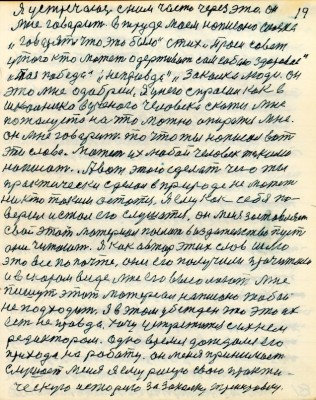 19
Я устречаюсь с ним часто через это. он
мне говорит. в труде моём написано слова
"говорят что это было" стихи Прош совет
у того кто может одерживать сам собою здоровье"
"Моя победа" "неправда" "Закалка люди. он
это мне одобрил, я у него спросил как в
школьника ученого человека скажи мне
пожалуйста на что можно опиратся мне.
он мне говорит. то что ты написал вот
эти слова. Может их любой человек такими
написат. А вот этого сделат чего ты
практически сделал в природе не может
ни кто таким остатся, я ему как себя по-
верил и стал его слушатся, он меня заставляет
свой этот материал послат в издательство пуст
они читают. Я как автор этих слов шлю
это все по почте, они его получили прочитали
и в скором виде мне его высылают. Мне
пишут этот материал написано тобою
не подходит. Я в этом убежден что это их
ест не правда, хочу устретится с ихнем
редиктором. Одно время дождался его
прихода на работу. он меня принимает
слушает меня я ему рисую свою практи-
ческую историю, за закалку, тринировку.